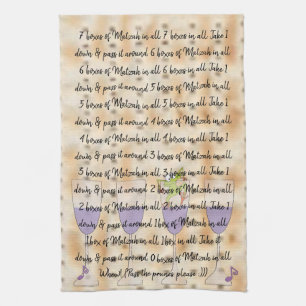 7 boxes of Matzah in all 7 boxes in all Take 1
down & pass it around 6 boxes of Matzah in all
6 boxes of Matzah in all 6 boxes in all Take 1
down & pass it around 5 boxes of Matzah in all.
5 boxes of Matzah in all 5 boxes in all. Take 1
down & pass it around 4 boxes of Matzah in all
4 boxes of Matzah in all 4 boxes in all Take 1
down & pass it around 3 boxes of Matzah in all.
3 boxes of Matzah in all 3 boxes in all Take 1
down & pass it around 2 boxes of Matzah in all
2 boxes of Matzah in all 2 boxes in all Take 1
down & pass it around 1 box of Matzah in all
1 box of Matzah in all 1 box in all Take it
down & pass it around 0 boxes of Matzah in all.
Pass the prunes please :)))